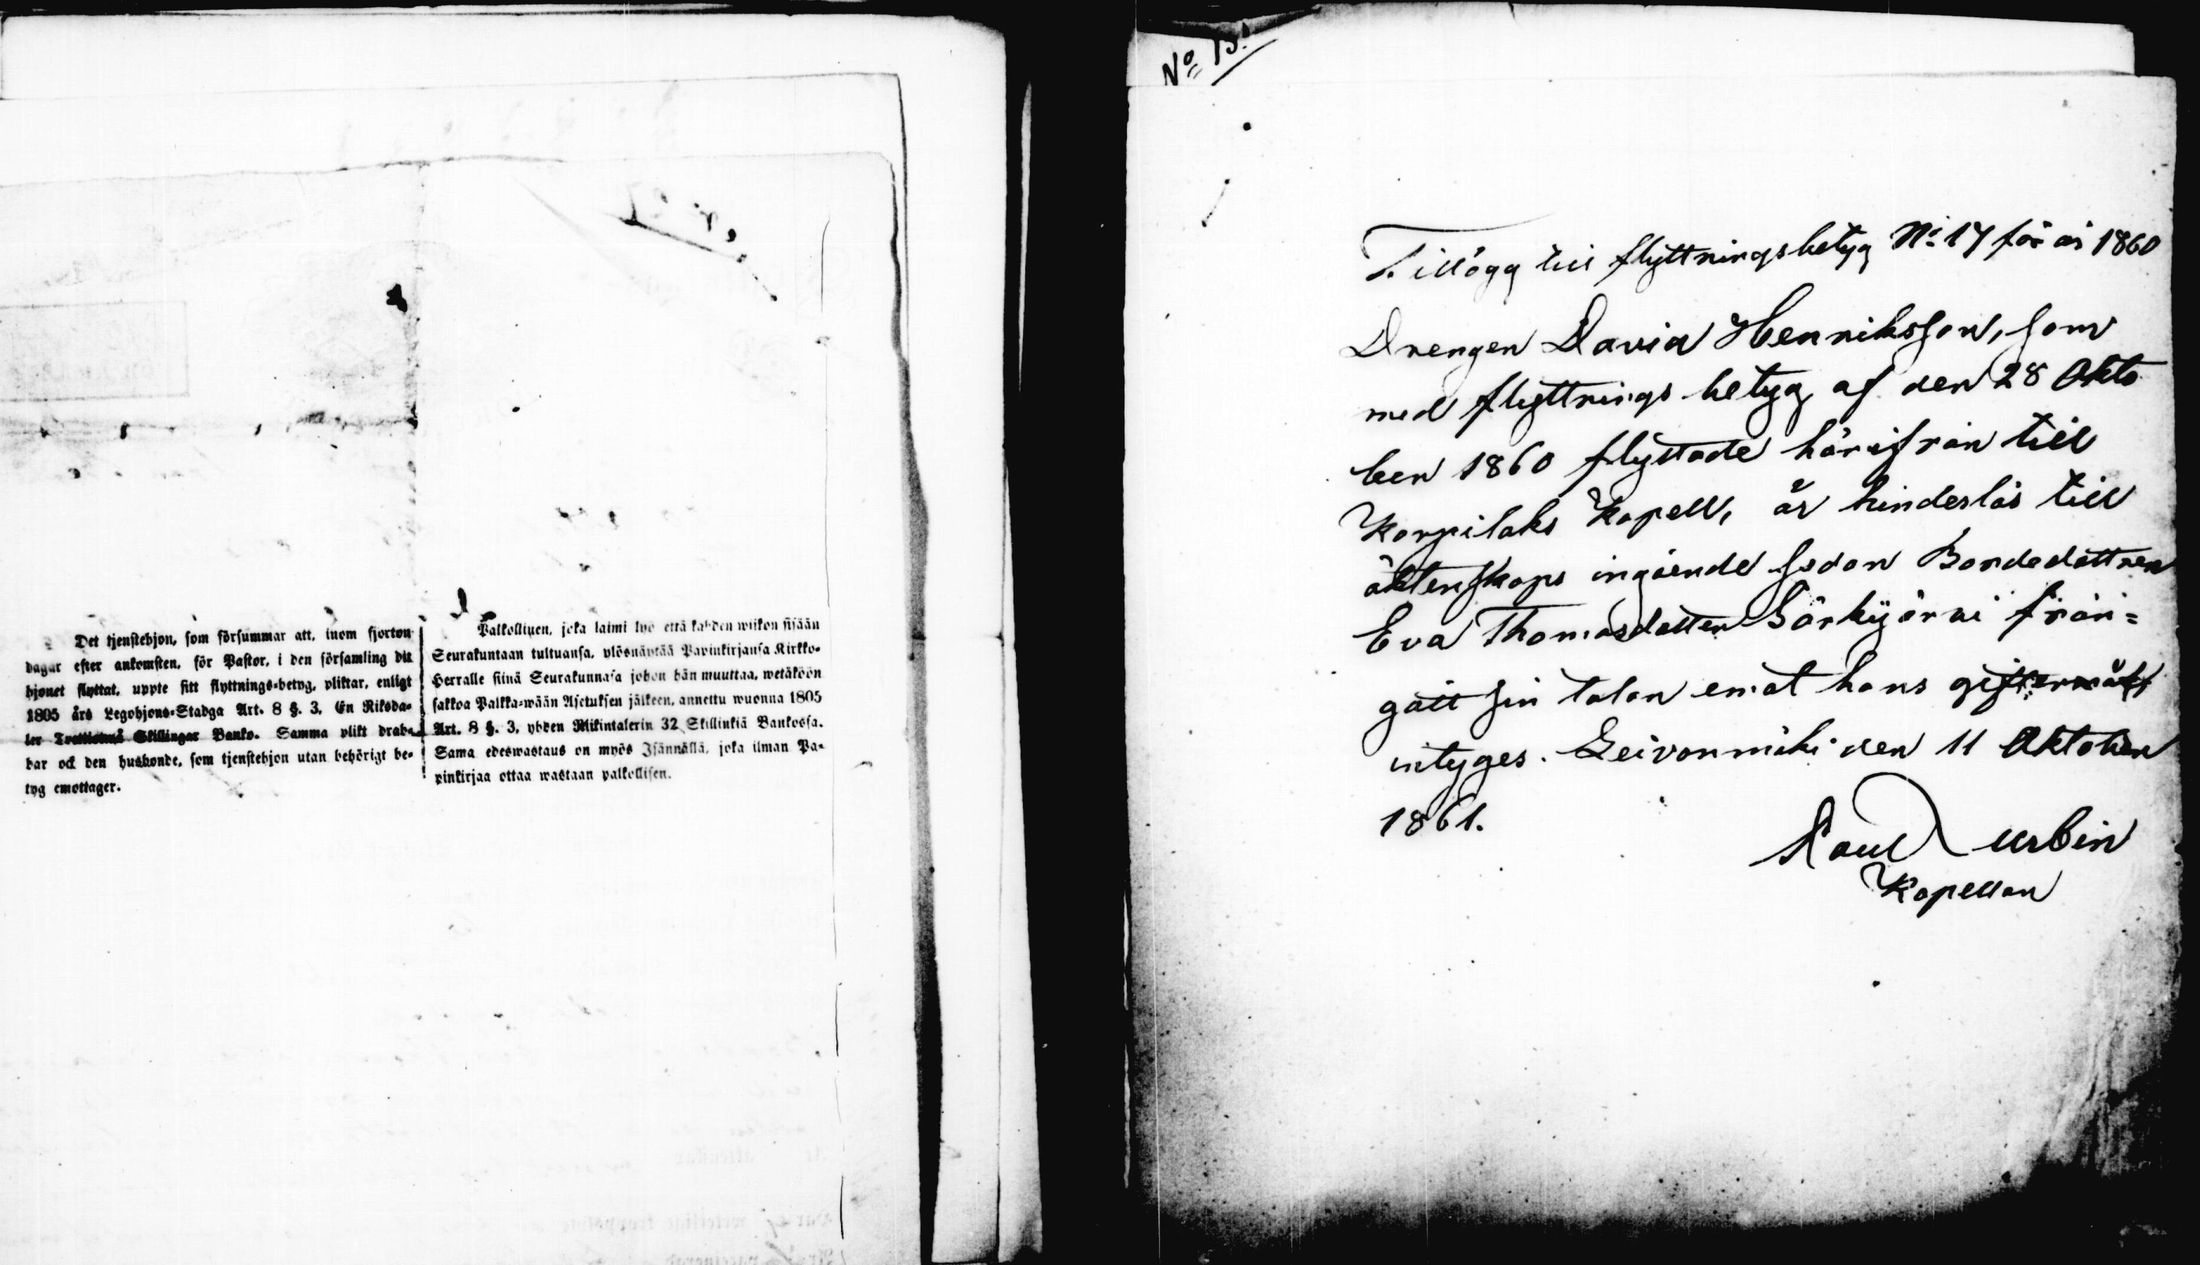 Det tjenstehjon, som försummar att, inom fjorton
dagar efter ankomsten, för Pastor, i den församling dit
hjonet flyttat, uppte sitt flyttnings-betyg, pliktar, enligt
1805 års Legohjons-Stadga Art. 8 §. 3, En Riksda-
ler Trettiotwå Skillingar Banko. Samma plikt drab-
bar ock den husbonde, som tjenstehjon utan behörigt be-
tyg emottager.
Palkollinen, joka laimi lyö että kahden wiikon sisään
Seurakuntaan tultuansa, ylösnäyttää Papinkirjansa Kirkko-
Herralle siinä Seurakunnasa johon hän muuttaa, wetäköön
sakkoa Palkka-wään Asetuksen jälkeen, annettu wuonna 1805
Art. 8 §. 3, yhden Riikintalerin 32 Skillinkiä Bankossa.
Sama edeswastaus on myös Isännällä, joka ilman Pa-
pinkirjaa ottaa wastaan palkollisen.
No 15.
Tillägg till flyttningsbetyg No 17 för år 1860
Drengen David Henriksson, som
med flyttnings betyg af den 28 Okto
ber 1860 flyttade härifrån till
Korpilaks Kapell, är hinderslös till
äktenskaps ingående sedan Bondedottren
Eva Thomasdotter Särkijärvi från=
gått sin talan emot hans giftermål
intyges. Leivonmäki den 11 Oktober
1861.
Paul Durbin
Kapellan